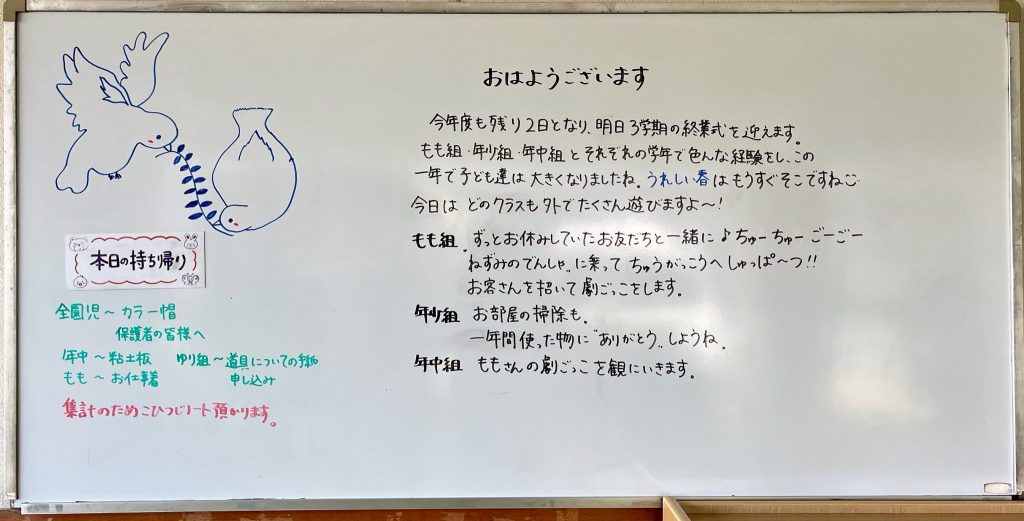 おはようございます
今年度も残り2日となり、明日3学期の終業式を迎えます。
もも組・年少組・年中組とそれぞれの学年で色んな経験をし、この
一年で子ども達は大きくなりましたね。うれしい春はもうすぐそこですね
今日はどのクラスも外でたくさん遊びますよ〜！
もも組 ずっとお休みしていたお友だちと一緒に♪ちゅーちゅーごーごー
ねずみのでんしゃ〟に乗ってちゅうがっこうへしゅっぱ〜つ!!
お客さんを招いて劇ごっこをします。
年少組 お部屋の掃除も。
一年間使った物に〝ありがとう〟しようね。
年中組 ももさんの劇ごっこを観にいきます。
本日の持ち帰り
全園児〜カラー帽
保護者の皆様へ
年中〜粘土板 ゆり組〜道具についての手紙
もも〜お仕事着 申し込み
集計のためこひつじノート預かります。